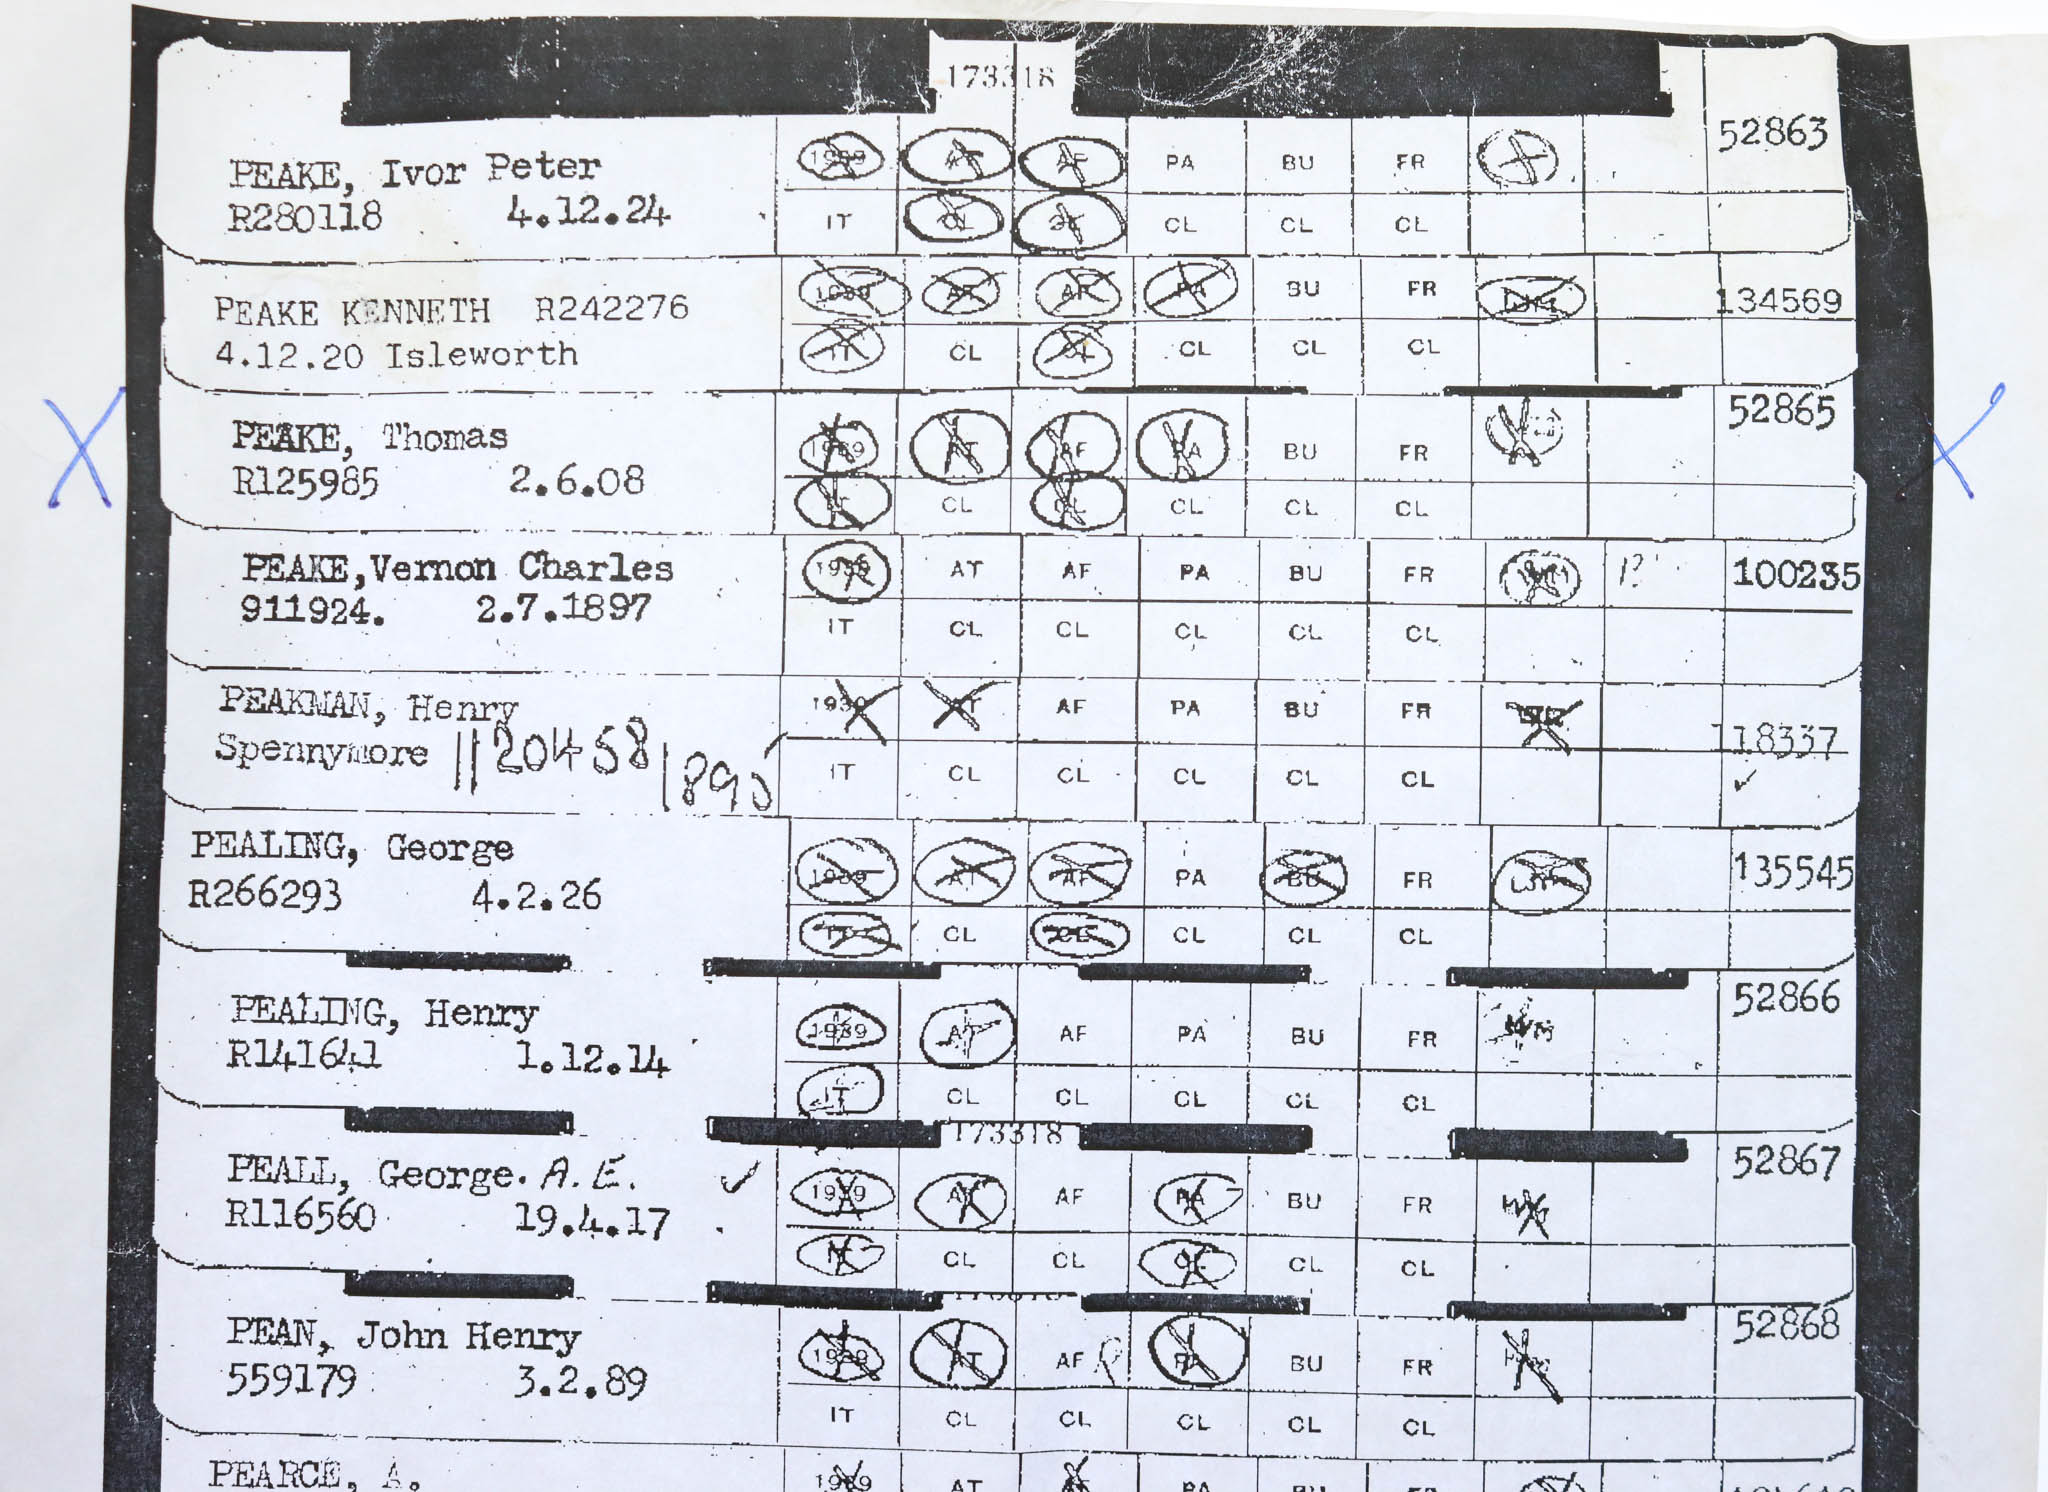 173318
PEAKE, Ivor Peter 1939 AT AF PA BU FR 52863
R280118 4.12.24 IT CL CL CL CL CL
PEAKE KENNETH R242276 1939 AT AF PA BU FR 134569
4.12.20 Isleworth IT CL CL CL CL CL
PEAKE, Thomas 1939 AT AF PA BU FR 52865
R125985 2.6.08 IT CL CL CL CL CL
PEAKE, Vernon Charles 1939 AT AF PA BU FR 100235
911924. 2.7.1897 IT CL CL CL CL CL
PEAKMAN, Henry 1939 AT AF PA BU FR 118337
Spennymore 1120458 1895 IT CL CL CL CL CL
PEALING, George 1939 AT AF PA BU FR 135545
R266293 4.2.26 IT CL CL CL CL CL
PEALING, Henry 1939 AT AF PA BU FR 52866
R141641 1.12.14 IT CL CL CL CL CL
173318
PEALL, George. A.E. 1939 AT AF PA BU FR 52867
R116560 19.4.17 IT CL CL CL CL CL
PEAN, John Henry 1939 AT AF PA BU FR 52868
559179 3.2.89 IT CL CL CL CL CL
PEARCE, A. 1939 AT AF PA BU FR